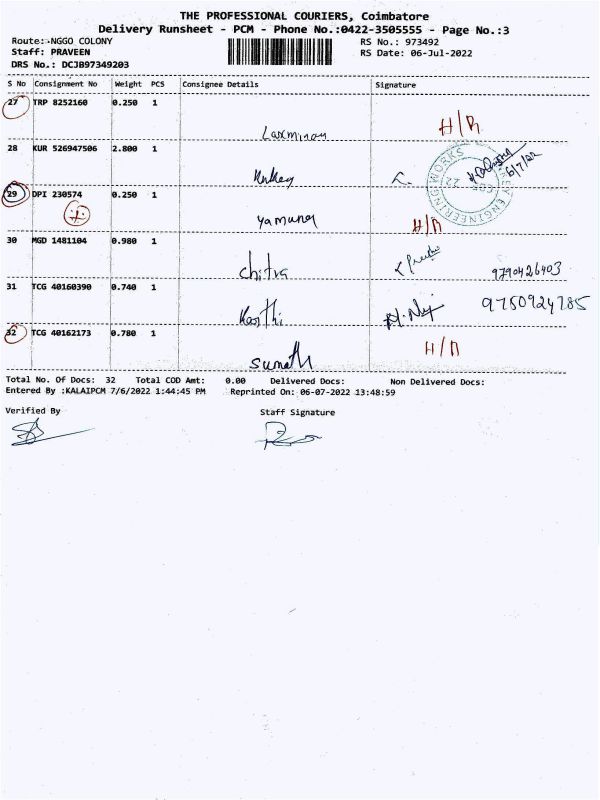 THE PROFESSIONAL COURIERS, Coimbatore
Delivery Runsheet - PCM - Phone No.:0422-3505555 - Page No.:3
Route:-NGGO COLONY RS No.: 973492
Staff: PRAVEEN RS Date: 06-Jul-2022
DRS No.: DCJB97349203
S No Consignment No Weight PCS Consignee Details Signature
27 TRP 8252160 0.250 1
Laxminan H/R
28 KUR 526947506 2.800 1
6/7/22
29 DPI 230574 0.250 1
Yamuna H/R
30 MGD 1481104 0.980 1
Chitra 9790426403
31 TCG 40160390 0.740 1
Karthi 9750924785
32 TCG 40162173 0.780 1
Sumath H/R
Total No. Of Docs: 32 Total COD Amt: 0.00 Delivered Docs: Non Delivered Docs:
Entered By :KALAIPCM 7/6/2022 1:44:45 PM Reprinted On: 06-07-2022 13:48:59
Verified By Staff Signature